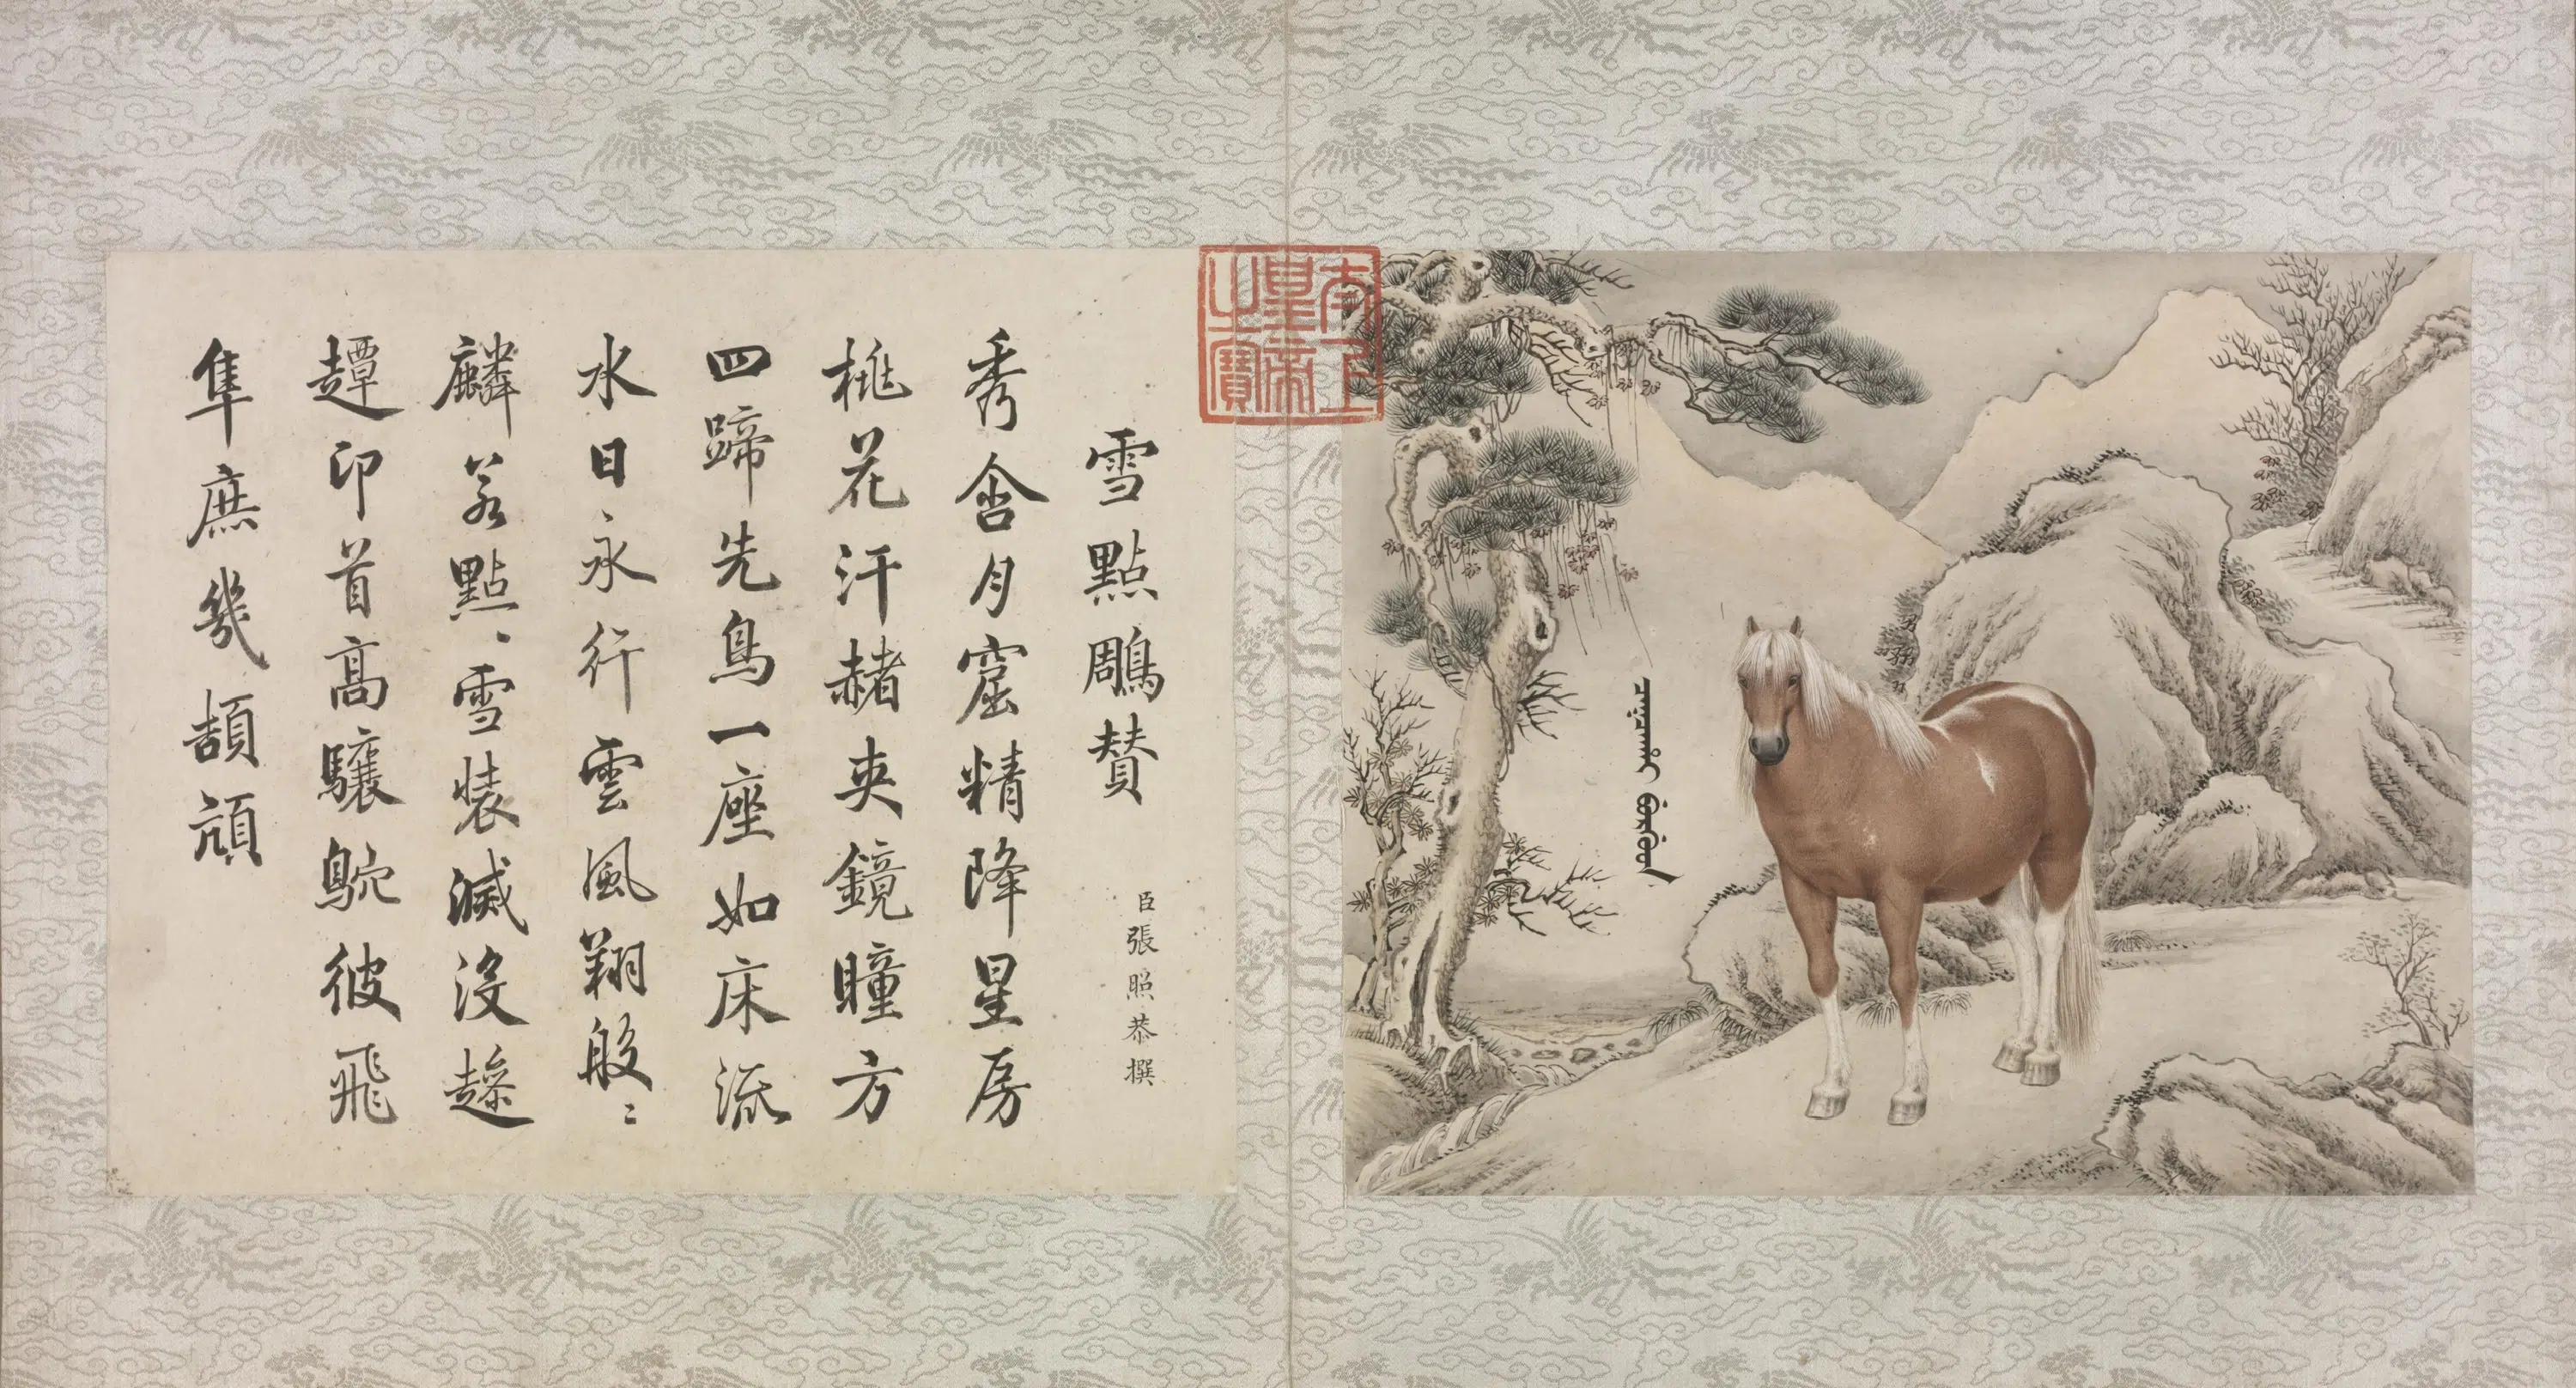 雪點鵰贊
臣張照恭撰
秀含月窟精降星房
桃花汗赭夾鏡瞳方
四蹄先鳥一座如床流
水日永行雲風翔般〻
麟若點〻雪裝滅沒趁
趯印首高驤鴕彼飛
隼庶幾頡頏
太上皇帝之寶